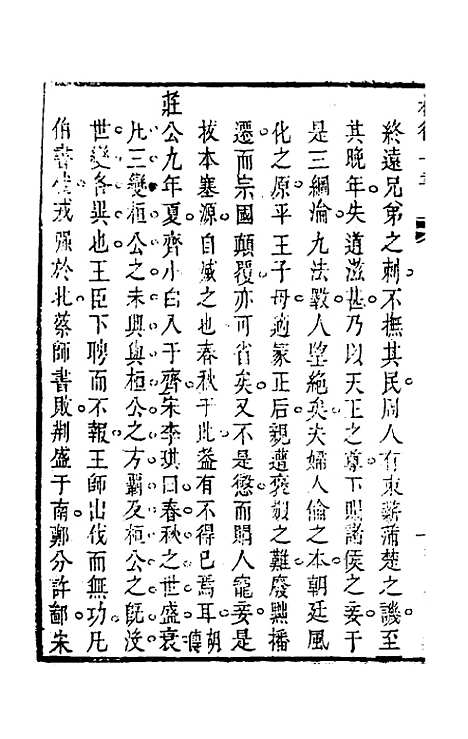 終遠兄弟之刺不撫其民周人有束薪蒲楚之譏至
其晚年失道滋甚乃以天王之尊下賵諸侯之妾于
是三綱淪九法斁人望絶矣夫婦人倫之本朝廷風
化之原平王子母適冢正后親遭褒姒之難廢黜播
遷而宗國顛覆亦可省矣又不是懲而賵人寵妾是
拔本塞源自滅之也春秋于此葢有不得已焉耳胡傳
莊公九年夏齊小白入于齊宋李琪曰春秋之世盛衰
凡三變桓公之未興與桓公之方霸及桓公之旣沒
世變各異也王臣下聘而不報王師出伐而無功凡
伯書伐戎强於北蔡師書敗荆盛于南鄭分許鄙宋